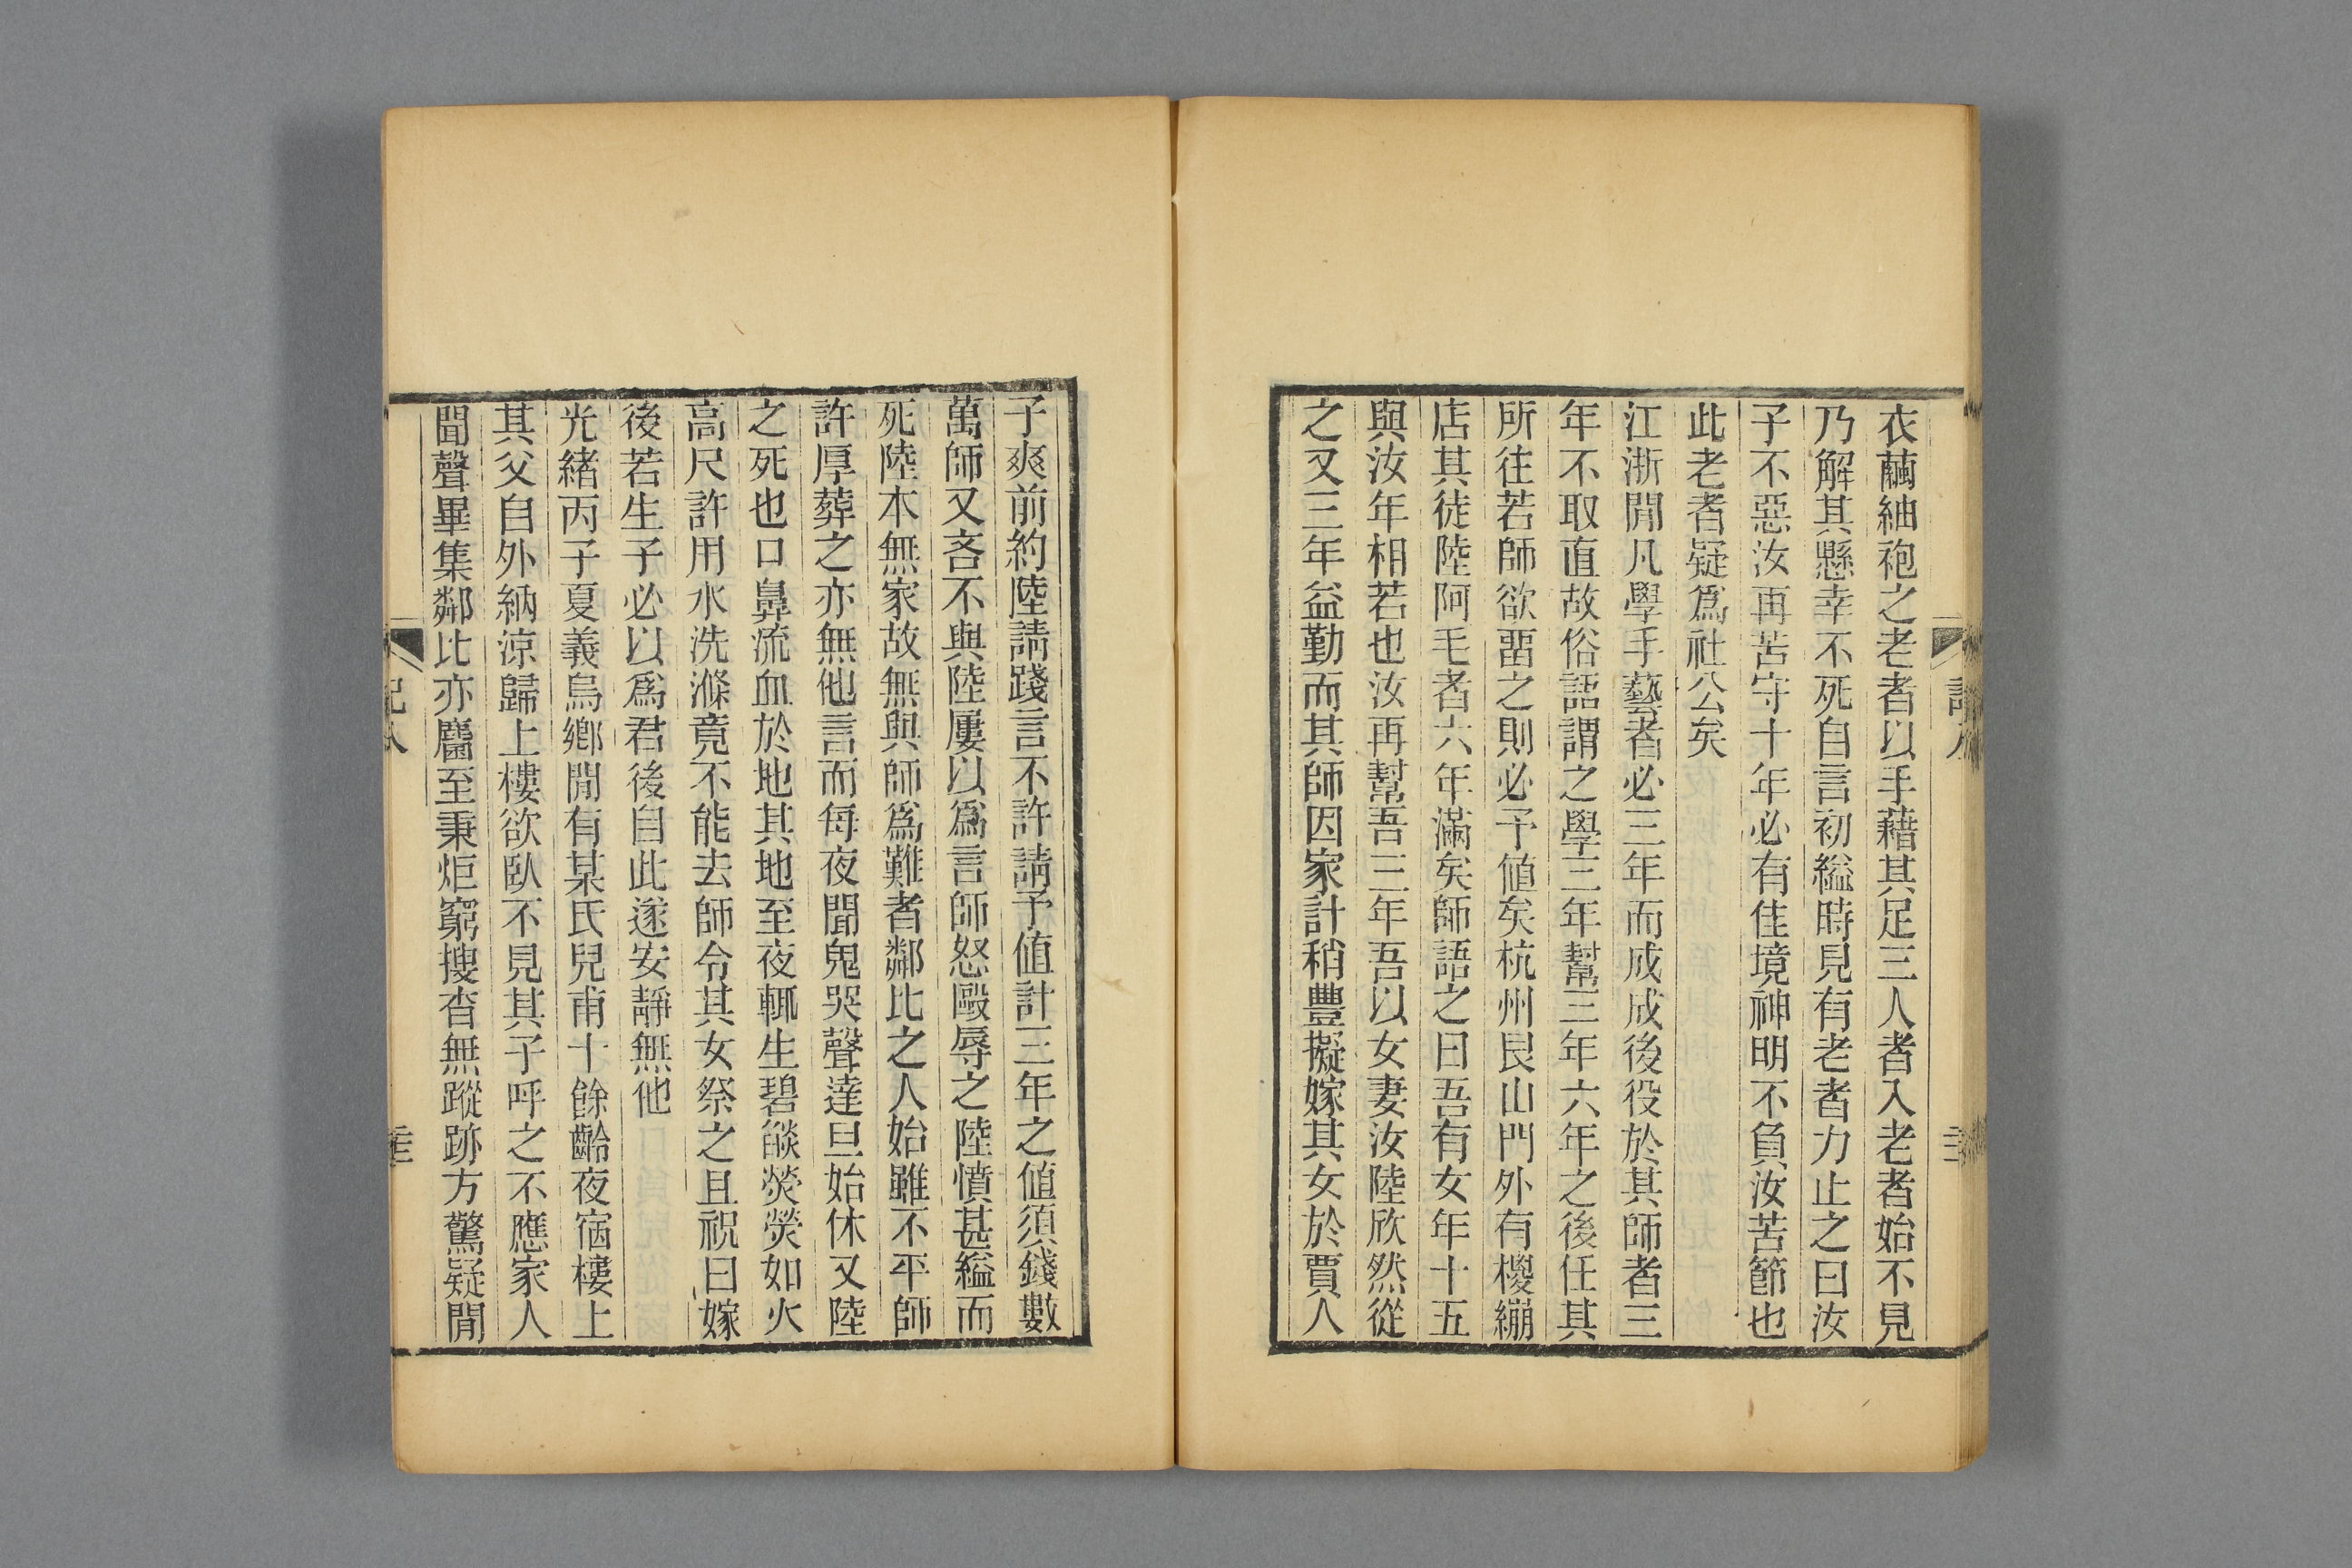 衣繭紬袍之老者以手藉其足三人者入老者始不見
乃解其懸幸不死自言初縊時見有老者力止之曰汝
子不惡汝再苦守十年必有佳境神明不負汝苦節也
此老者疑爲社公矣
江浙閒凡學手藝者必三年而成成後役於其師者三
年不取直故俗語謂之學三年幫三年六年之後任其
所往若師欲畱之則必予値矣杭州艮山門外有椶繃
店其徒陸阿毛者六年滿矣師語之曰吾有女年十五
與汝年相若也汝再幫吾三年吾以女妻汝陸欣然從
之又三年益勤而其師因家計稍豐擬嫁其女於賈人
子爽前約陸請踐言不許請予値計三年之値須錢數
萬師又吝不與陸屢以爲言師怒毆辱之陸憤甚縊而
死陸本無家故無與師爲難者鄰比之人始雖不平師
許厚葬之亦無他言而每夜聞鬼哭聲達旦始休又陸
之死也口鼻流血於地其地至夜輒生碧燄熒熒如火
高尺許用水洗滌竟不能去師令其女祭之且祝曰嫁
後若生子必以爲君後自此遂安靜無他
光緒丙子夏義烏鄉閒有某氏兒甫十餘齡夜宿樓上
其父自外納涼歸上樓欲臥不見其子呼之不應家人
聞聲畢集鄰比亦麕至秉炬窮搜杳無蹤跡方驚疑閒
記八